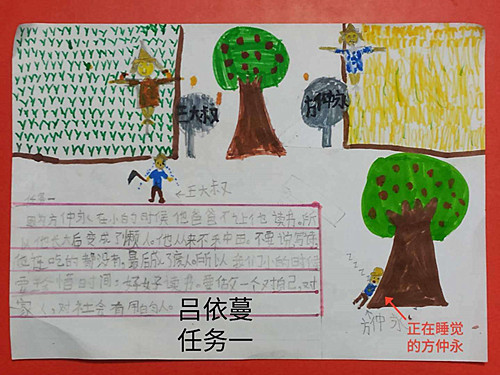 王大叔
方仲永
←王大叔
任务一
因为方仲永在小的时候他爸爸不让他读书。所
以他长大后变成了懒人。他从来不去中田。不要说写诗
他连吃的都没有,最后成了废人。所以人在我们小的时候
要 时间,好好读书。要做一个对自己,对
家人,对社会有用的人。
zzzzz
方仲永
吕依蔓
任务一
正在睡觉
的方仲永